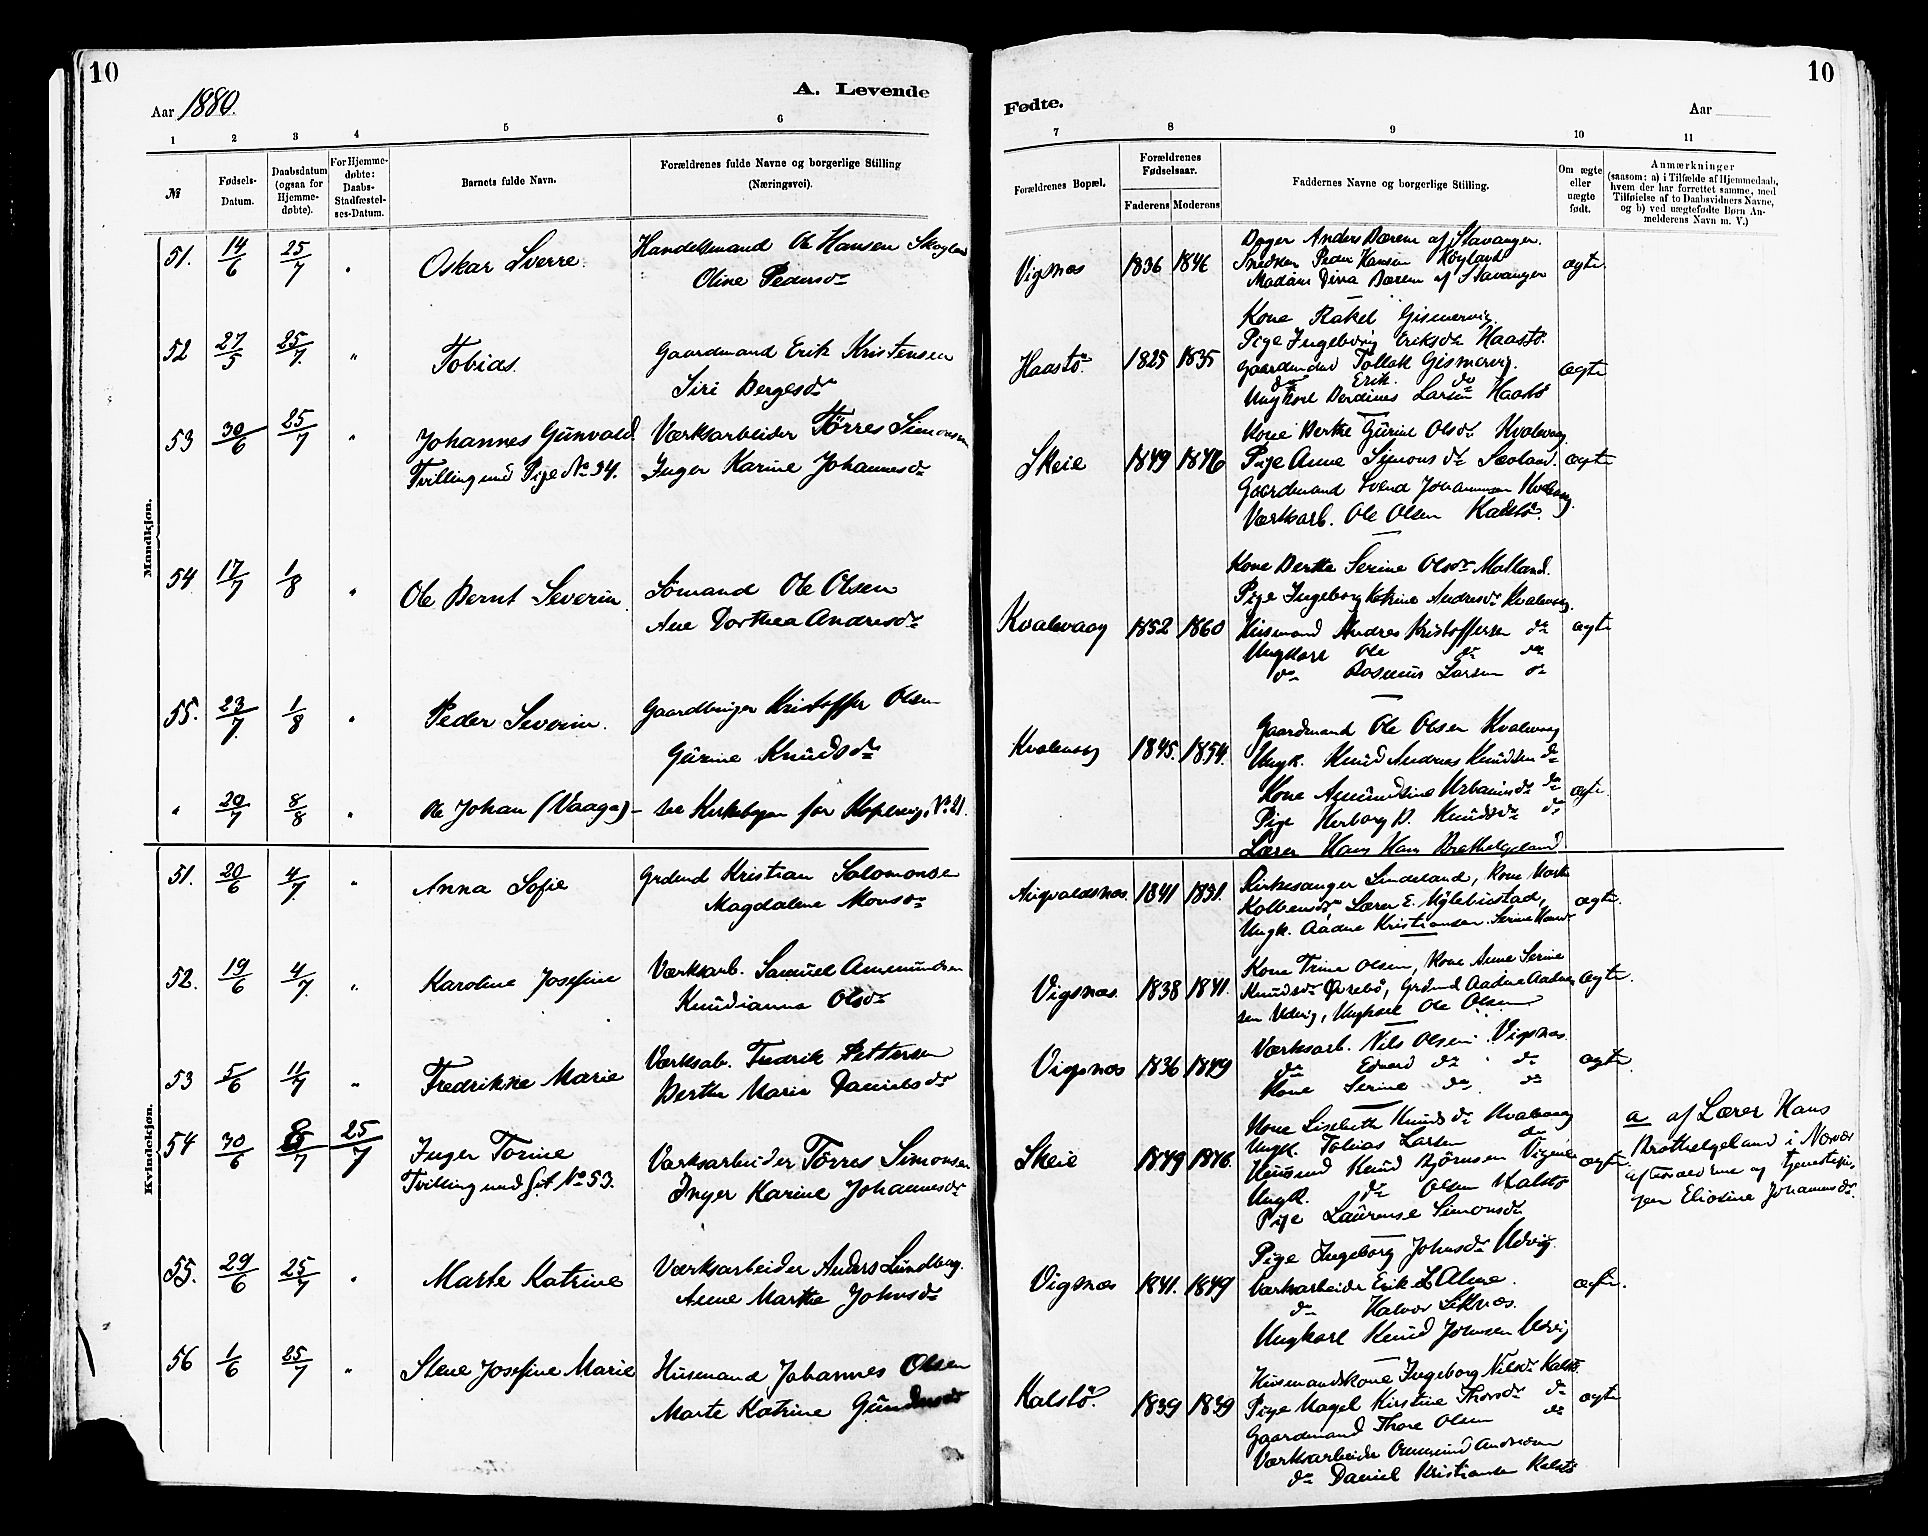 10
Aar 1880.
A. Levende
1 2 3 4 5 6
№
Fødsels-
Datum.
Daabsdatum
(ogsaa for
Hjemme-
døbte).
For Hjemme-
døbte:
Daabs-
Stadfæstel-
ses-Datum.
Barnets fulde Navn.
Forældrenes fulde Navne og borgerlige Stilling
(Næringsvei).
Mandkjøn.
51. 14/6 25/7 " Oskar Sverre. Handelsmand Ole Hansen
Oline Pedersdr
52 27/5 25/7 " Tobias. Gaardmand Erik Kristensen
Siri Bergesdr
53 30/6 25/7 " Johannes Gunvald. Værksarbeider Törres Simonsen
Tvilling med Pige No 54. Inger Karine Johannesdr
54 17/7 1/8 " Ole Bernt Severin. Sömand Ole Olsen
Ane Dorthea Andresdr
55. 23/7 1/8 " Peder Severin. Gaardbruger Kristoffer Olsen
Gurine Knudsdr
" 20/7 8/8 " Ole Johan (Vaaga) – see Kirkebogen for Kopervig, No 21.
Kvindekjøn.
51. 20/6 4/7 " Anna Sofie Grdmd Kristian Salomonsen
Magdalene Monsdr
52. 19/6 4/7 " Karoline Josefine Værksarb. Samuel Ammundsen
Knudianna Olsdr
53 5/6 11/7 " Fredrikke Marie Værksab. Fredrik Pettersen
Berthe Marie Danielsdr
54 30/6 8/7 25/7 Inger Torine Værksarbeider Törres Simonsen
Tvilling med Gut No 53. Inger Karine Johannesdr
55. 29/6 25/7 " Marte Katrine Værksarbeider Anders Lundberg.
Anne Marthe Johnsdr
56 1/6 25/7 " Stene Josefine Marie Husmand Johannes Olsen
Marte Katrine
10
Fødte.
Aar
7 8 9 10 11
Forældrenes Bopæl.
Forældrenes
Fødselsaar.
Faderens Moderens
Faddernes Navne og borgerlige Stilling.
Om ægte
eller
uægte
født.
Anmærkninger
(saasom: a) i Tilfælde af Hjemmedaab,
hvem der har forrettet samme, med
Tilføielse af to Daabsvidners Navne,
og b) ved uægtefødte Børn An-
melderens Navn m. V.)
Vigsnæs 1836 1846 ægte.
Anders Bærem af Stavanger.
Snedker Peder Hansen
Madam Dina Bærem af Stavanger
Haastö 1825 1835 ægte
Kone Rakel Gismervig.
Pige Ingeborg Eriksdr Haastö.
Gaardmand Tollak Gismervig.
do Erik do
Ungkarl Berdines Larsen Haastö
Skeie 1849 1846 ægte
Kone Berthe Gurine Olsdr Kvalevaag
Pige Anne Simonsdr
Gaardmand Svend Johannesen Kvalevaag.
Værksarb. Ole Olsen Kalstö.
Kvalevaag 1852 1860 ægte
Kone Berthe Serine Olsdr
Pige Ingeborg Katrine Andresdr Kvalevaag.
Husmand Andres Kristoffersen do
Ungkarl Ole do do
do Rasmus Larsen do
Kvalevaag 1845. 1854. ægte.
Gaardmand Ole Olsen Kvalevaag
Ungk. Knud Andreas Knudsen do
Kone Amundine Urbanusdr do
Pige Herborg K. Knudsdr do
Lærer Hans Hans Brethelgeland
Augvaldsnæs. 1841 1831. ægte.
Kirkesanger Lindeland, Kone Marte
Kolbensdr, Lærer E. Myklebustad,
Ungk. Aadne Kristiansen. Serine
Vigsnæs. 1838 1841. ægte.
Kone Trine Olsen, Kone Anne Serine
Knudsdr Övrebö, Grdmd Aadne Aadne-
sen Udvig, Ungkarl Ole Olsen
Vigsnæs 1836 1849 ægte.
Værksarb. Nils Olsen Vigsnæs.
do Edvard do do
Kone Serine do do
Skeie 1849 1846. ægte.
Kone Lisebeth Knudsdr Kvalevaag
Ungk. Tobias Larsen do
Husmnd Knud Björnsen
Ungk. do Olsen Kalstö
Pige Laurense Simonsdr
a af Lærer Hans
Brethelgeland i Nærvær
af Forældrene og Tjenestepi-
gen Eliosine Johannesdr.
Vigsnæs 1841. 1849 ægte.
Pige Ingeborg Johnsdr Udvig.
Værksarbeider Erik L. Alne.
do Halvor
Ungkarl Knud Johnsen Udvig
Kalstö. 1839 1839 ægte
Husmandskone Ingeborg Nilsdr Kalstö.
Pige Magel Kirstine Thoresdr do
Gaardmand Thore Olsen do
Værksarbeider Ommund Andresen
do Daniel Kristiansen Kalstö